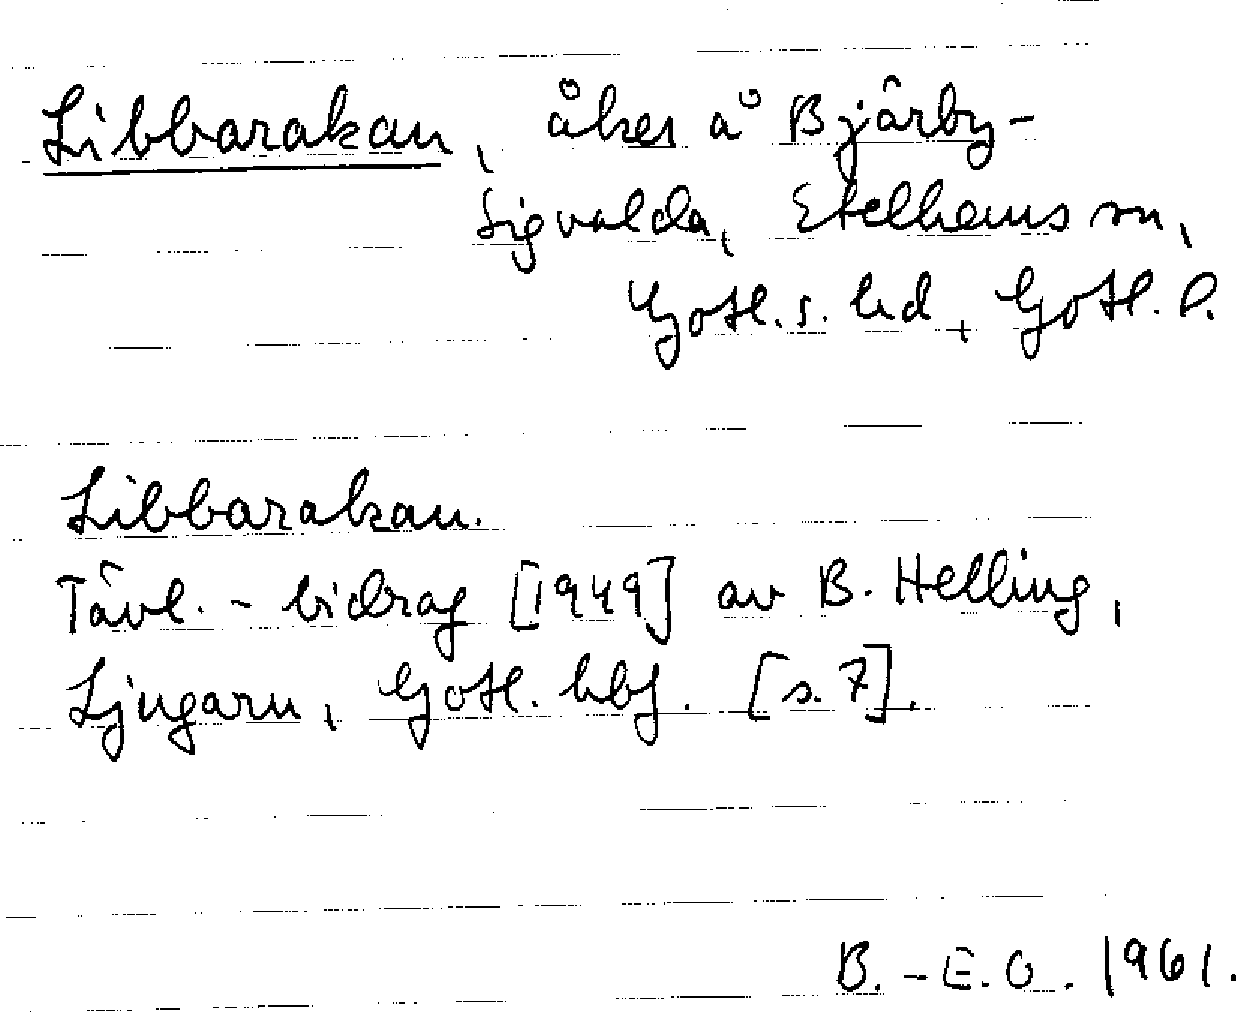 Libbarakan, åker å Bjärby-
Sigvalda, Etelhems sn,
Gotl. s. hd, Gotl. l.
Libbarakan.
Tävl.-bidrag [1949] av B. Helling,
Ljugarn, Gotl. hbf. [s. 7].
B.-E.O. 1961.